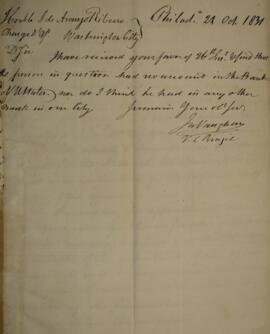 Philad.ª 28 Oct 1831
Honble J de Araujo Ribeiro
Chargé d'Aff Washington City
D Sir
I have received your favor of 26th Inst. & find that
the person in question had no account in the Bank
of U States, nor do I think he had in any other
Bank in our City. I remain Your Ob Ser
Jn Vaughan
V C